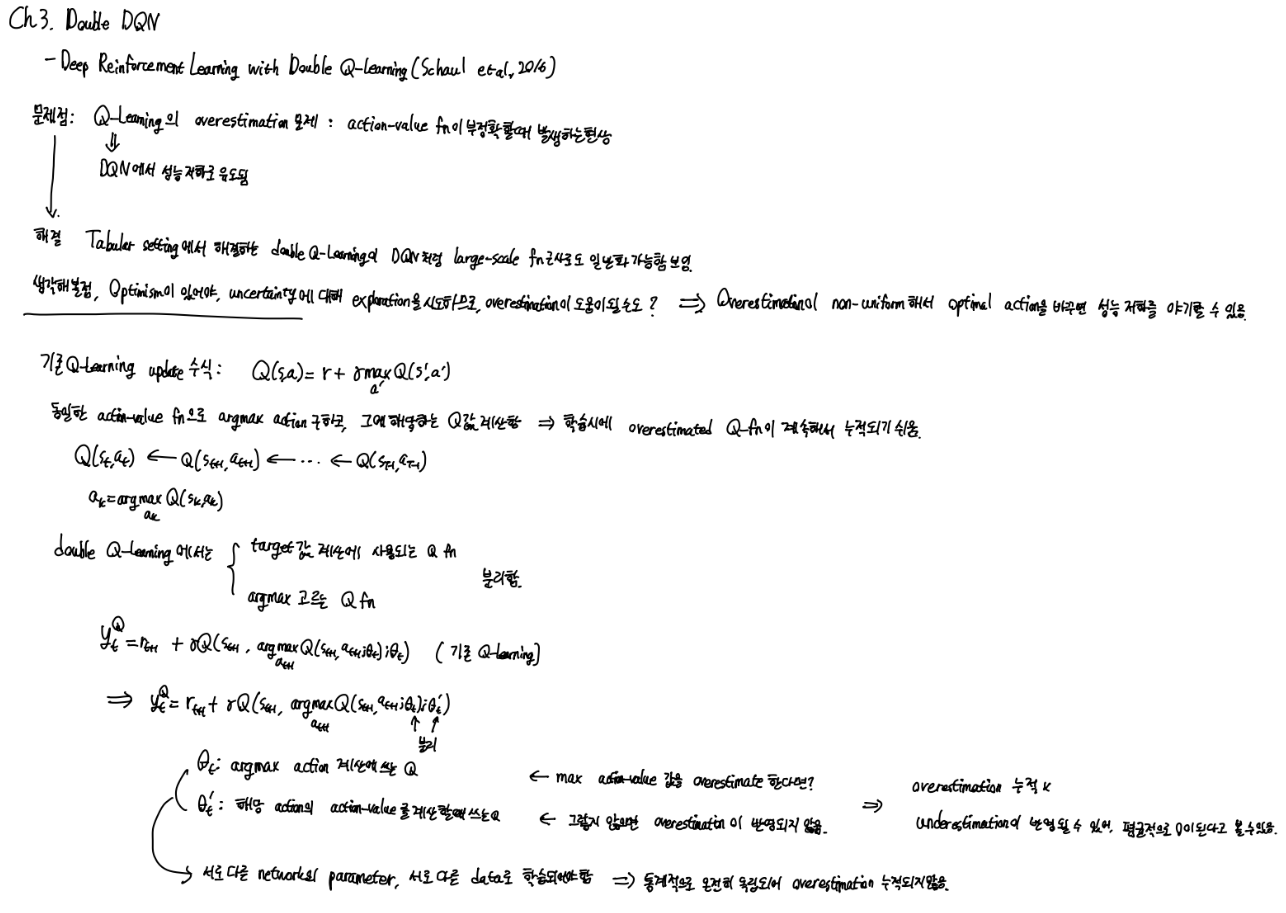 Ch3. Double DQN
- Deep Reinforcement Learning with Double Q-Learning (Schaul et al, 2016)
문제점: Q-Learning의 overestimation 문제 : action-value fn이 부정확할때 발생하는현상
⇓
DQN에서 성능저하로 유도됨
해결 Tabular setting에서 해결하는 double Q-Learning이 DQN처럼 large-scale fn근사로도 일반화가능함 보임.
생각해볼점, Optimism이 있어야, uncertainty에 대해 exploration을 시도하므로, overestimation이 도움이될수도? ⇒ Overestimation이 non-uniform해서 optimal action을 바꾸면 성능 저하를 야기할 수 있음.
기존 Q-Learning update 수식: Q(s,a) = r + γ max Q(s',a')
a'
동일한 action-value fn으로 argmax action 구하고, 그에 해당하는 Q값 계산함 ⇒ 학습시에 overestimated Q-fn이 계속해서 누적되기 쉬움.
Q(s_t,a_t) ← Q(s_{t+1},a_{t+1}) ← ... ← Q(s_{T-1},a_{T-1})
a_k = argmax Q(s_k,a_k)
a_k
double Q-Learning 에서는 { target값 계산에 사용되는 Q fn
분리함.
argmax 고르는 Q fn
y_t^Q = r_{t+1} + γQ(s_{t+1}, argmax Q(s_{t+1}, a_{t+1};θ_t);θ_t) (기존 Q-Learning)
a_{t+1}
⇒ y_t^Q = r_{t+1} + γQ(s_{t+1}, argmax Q(s_{t+1}, a_{t+1};θ_t);θ_t')
a_{t+1}
↑ ↑
분리
θ_t: argmax action 계산에 쓰는 Q ← max action-value 값을 overestimate 한다면? ⇒ overestimation 누적 x
θ_t': 해당 action의 action-value를 계산할때 쓰는Q ← 그렇지 않으면 overestimation이 반영되지 않음. underestimation이 반영될 수 있어, 평균적으로 0이된다고 볼수있음.
→ 서로 다른 network의 parameter, 서로 다른 data로 학습되어야함 ⇒ 통계적으로 완전히 독립되어 overestimation 누적되지않음.